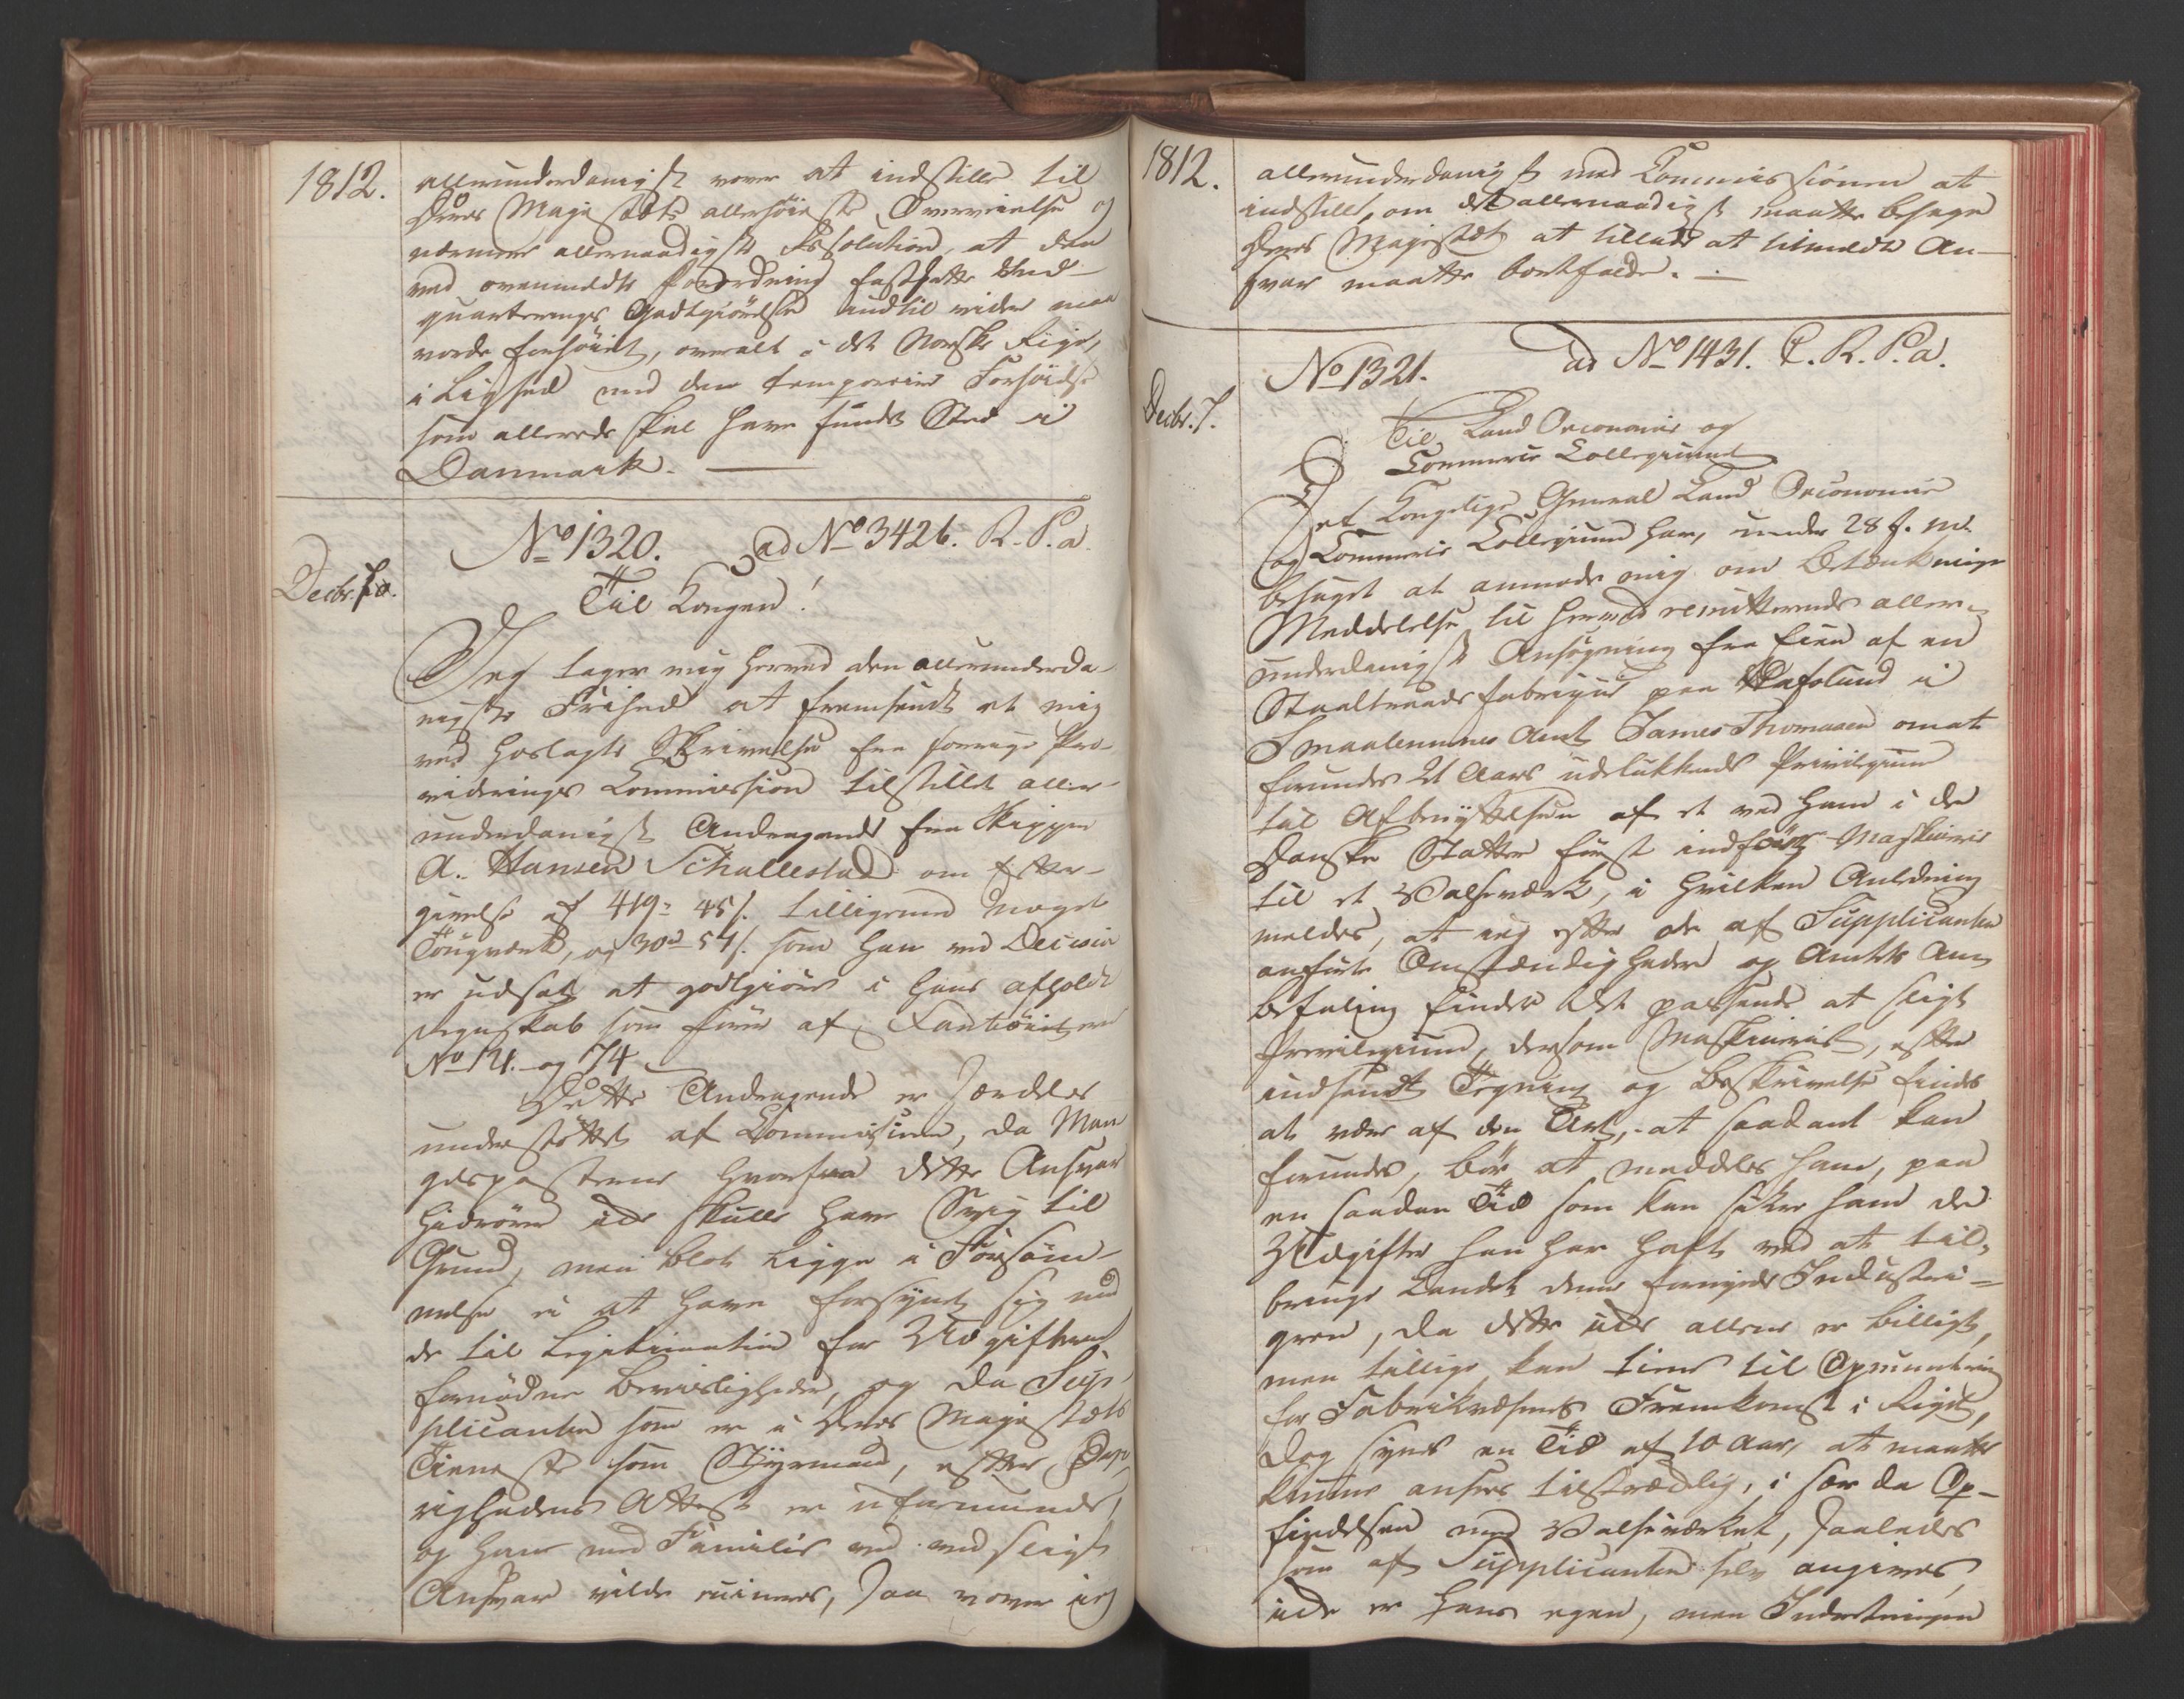 1812.
allerunderdanigst vover at indstille til
Deres Majestæts allerhøieste Overveielse og
nærmere allernaadigste Resolution, at den
ved ovenmeldte Forordning fastsatte Ind-
quarterings Godtgiørelse indtil videre maa
vorde forhøiet, overalt i det Norske Rige,
i Lighed med den temporaire Forhøielse
som allerede skal have fundet Sted i
Danmark.
No 1320. ad No 3426. R. P. a.
Decbr. 7 a.
Til Kongen!
Jeg tager mig herved den allerunderda-
nigste Frihed at fremsende et mig
ved hoslagte Skrivelse fra forrige Pro-
viderings Commission tilstillet aller-
underdanigst Andragende fra Skipper
A. Hansen Schullestad om Efter-
givelse af 419 45 s. tilligemed noget
Tougværk, og 30 rd 54 s. som han ved Decision
er udsat at godtgiøre i hans afholdte
Regnskab som fører af Kanbaaden
No 14. og 74
Dette Andragende er særdeles
understøttet af Commissionen, da Man
gelsposterne hvorfra dette Ansvar
hidrører ikke skulle have Svig til
Grund, men blot ligge i Forsøm-
melse i at have forsynet sig med
de til Legitimation for Udgifterne
fornødne Beviisligheder, og da Sup-
plicanten som er i Deres Majestæts
Tieneste som Styrmand, efter Øv-
righedens Attest er uformuende,
og han med Familie ved ved sligt
Ansvar vilde ruineres, saa vover jeg
1812.
allerunderdanigst med Commissionen at
indstille, om det allernaadigst maatte behage
Deres Majestæt at tillade at bemeldte An-
svar maatte bortfalde.
No 1321. ad No 1431. C. R. P. a.
Decbr. 7.
Til Land Oeconomie og
Commerce Collegiumet
Det Kongelige General Land Oeconomie
og Commerce Collegium har, under 28 f. M.
behaget at anmode mig om Betænknings
Meddelelse til herved remitterende aller-
underdanigst Ansøgning fra Eier af en
Staaltraads fabrique paa Hafslund i
Smaalenenes Amt James Thomasen om at
forundes 21 Aars udelukkende Privilegium
til Afbenyttelsen af et ved ham i de
Danske Stater først indført Maskineri
til et Valseværk, i hvilken Anledning
meldes, at jeg efter de af Supplicanten
anførte Omstændigheder og Amtets An-
befaling finder det passende at sligt
Privilegium, dersom Maskineriet, efter
indsendt Tegning og Beskrivelse findes
at være af den Art, at saadant kan
forundes, bør at meddeles ham, paa
en saadan Tid som kan sikre ham de
Udgifter han har haft ved at til-
bringe Landet denne fornyede Industri-
green, da dette ikke allene er billigt,
men tillige kan tiene til Opmuntring
for Fabrikvæsenets Fremkomst i Riget,
dog synes en Tid af 10 Aar, at maatte
kunne ansees tilstrækkelig, i sær da Op-
findelsen med Valseværket, saaledes
som af Supplicanten selv angives,
ikke er hans egen, men Indretningen